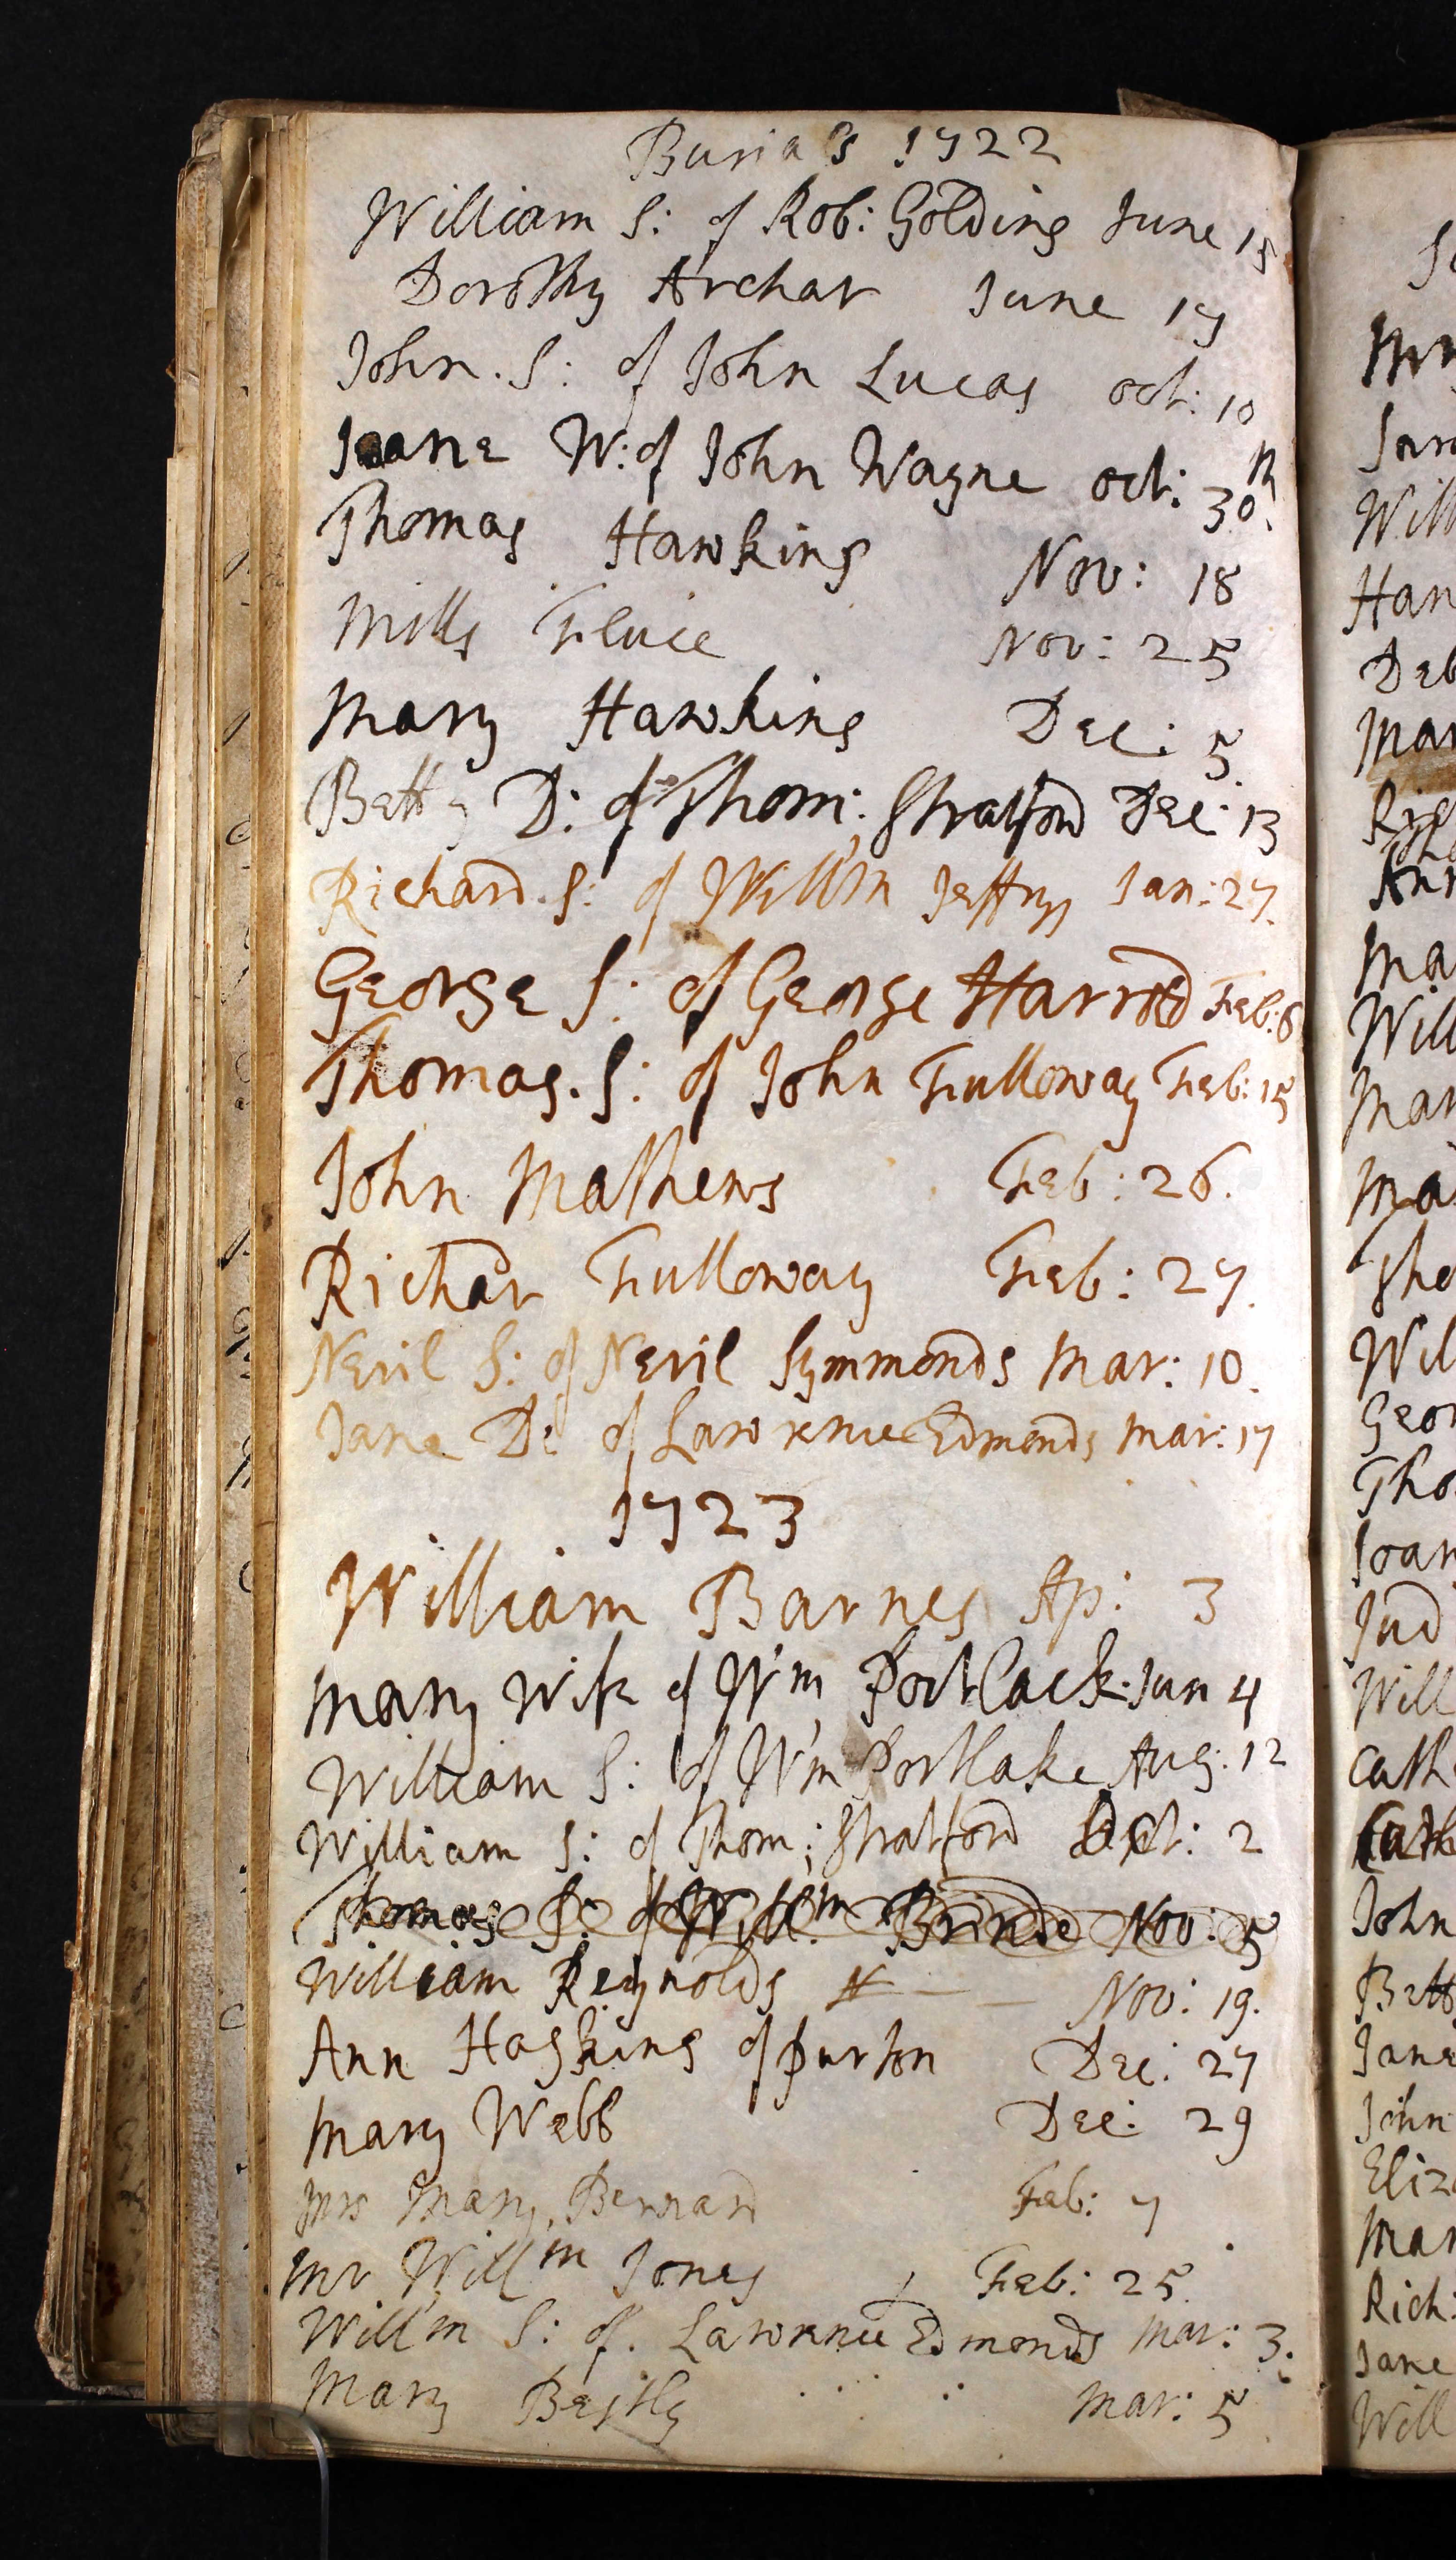 Burials 1722
William S: of Rob: Golding June 15
Dorothy Archar June 17
John. S: of John Lucas oct: 10
Joane W: of John Wayne oct: 30th.
Thomas Hawkins Nov: 18
Mills Nov: 25
Mary Hawkins Dec: 5.
Betty D: of Thom: Stratford Dec: 13
Richard. S: of Will'm Jeffrys Jan: 27.
George S: of George Harrod Feb: 6
Thomas. S: of John Fulloway Feb: 15
John Mathews Feb: 26.
Richar Fulloway Feb: 27.
Nevil S: of Nevil Symmonds Mar: 10.
Jane D: of Lawrence Edmonds Mar: 17
1723
William Barnes Ap: 3
Mary Wife of W'm Portlack Jun 4
William S: of W'm Portlake Aug: 12
William S: of Thom: Stratford Oct: 2
Thomas S: of Will:m Brinde Nov: 5
William Reynolds Nov: 19.
Ann Haskins of purton Dec: 27
Mary Webb Dec: 29
Mrs Mary Bernard Feb: 7
Mr Willm Jones Feb: 25.
Will'm S: of. Lawrence Edmonds Mar: 3.
Mary Mar: 5
Mrs
Will
Han
Deb
Mar
Ma
Will
Mar
Ma
Tho
Wil
Geor
Tho
Joan
Jud
Will
Cath
Cath
John
Bett
Jane
John
Eliz
Mar
Rich.
Jane
Will